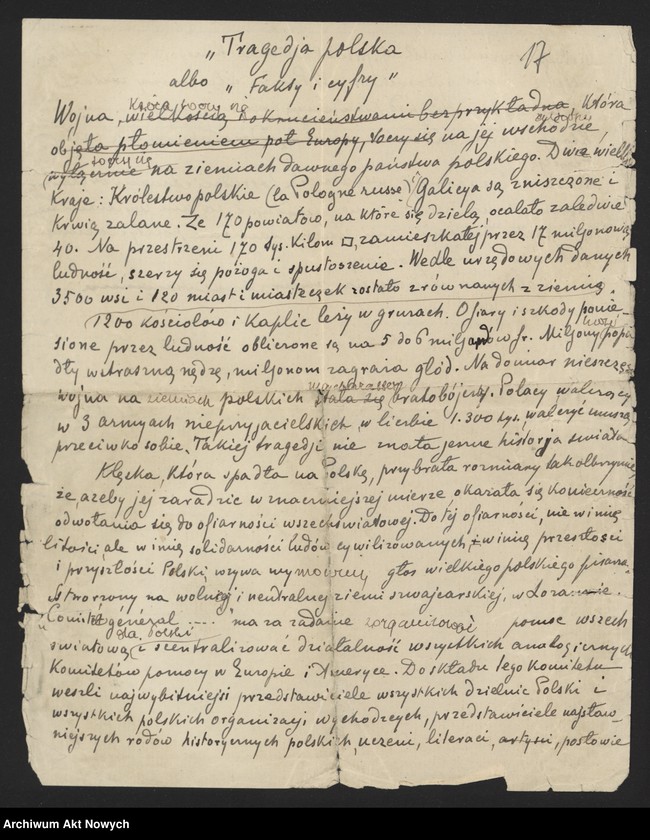 „Tragedja polska
17
albo „Fakty i cyfry"
która toczy się
Wojna, wielkością i okrucieństwami bezprzykładna, która
objęła płomieniem pół Europy, toczy się na jej wschodzie,
toczy się
wyłącznie na ziemiach dawnego państwa polskiego. Dwa wielkie
kraje: Królestwo polskie (la Pologne russe) i Galicya są zniszczone i
krwią zalane. Ze 170 powiatów, na które się dzielą, ocalało zaledwie
40. Na przestrzeni 170 tys. kilom □, zamieszkałej przez 17 miljonową
ludność, szerzy się pożoga i spustoszenie. Wedle urzędowych danych
3500 wsi i 120 miast i miasteczek zostało zrównanych z ziemią.
1200 kościołów i kaplic leży w gruzach. Ofiary i szkody ponie-
sione przez ludność obliczone są na 5 do 6 miljardów fr. Miljony ludzi popa-
dły w straszną nędzę, miljonom zagraża głód. Na domiar nieszczęść
wojna na ziemiach polskich stała się bratobójczą. Polacy walczący
w 3 armjach nieprzyjacielskich, w liczbie 1.300 tys. walczyć muszą
przeciwko sobie. Takiej tragedji nie znała jeszcze historja świata.
Klęska, która spadła na Polskę, przybrała rozmiary tak olbrzymie,
że, ażeby jej zaradzić w znaczniejszej mierze, okazała się konieczność
odwołania się do ofiarności wszechświatowej. Do tej ofiarności, nie w imię
litości, ale w imię solidarności ludów cywilizowanych, i w imię przeszłości
i przyszłości Polski wzywa wymowny głos wielkiego polskiego pisarza.
Stworzony na wolnej i neutralnej ziemi szwajcarskiej, w Lozannie
„Comité général .... " ma za zadanie zorganizować pomoc wszech
dla Polski
światową i scentralizować działalność wszystkich analogicznych
Komitetów pomocy w Europie i Ameryce. Do składu tego Komitetu
weszli najwybitniejsi przedstawiciele wszystkich dzielnic Polski i
wszystkich polskich organizacji wychodźczych, przedstawiciele najsław-
niejszych rodów historycznych polskich, uczeni, literaci, artyści, posłowie
Archiwum Akt Nowych